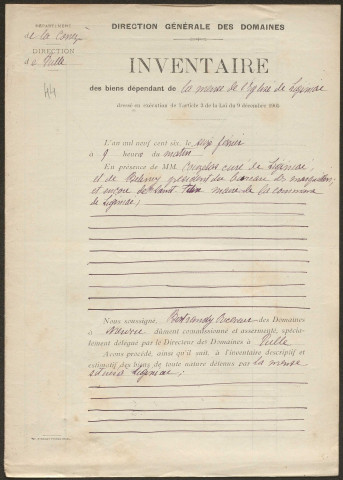 DÉPARTEMENT
de la Corrèze
DIRECTION
de Tulle
44
DIRECTION GÉNÉRALE DES DOMAINES
INVENTAIRE
des biens dépendant de la mense de l'Eglise de Liginiac
dressé en exécution de l'article 3 de la loi du 9 décembre 1905.
L'an mil neuf cent six, le six février
à 9 heures du matin
En présence de MM. curé de Liginiac,
et de président du bureau des marguilliers,
et encore de maire de la commune
de Liginiac;
Nous soussigné, Receveur des Domaines
à Neuvic dûment commissionné et assermenté, spécia-
lement délégué par le Directeur des Domaines à Tulle
Avons procédé, ainsi qu'il suit, à l'inventaire descriptif et
estimatif des biens de toute nature détenus par la mense
Liginiac;